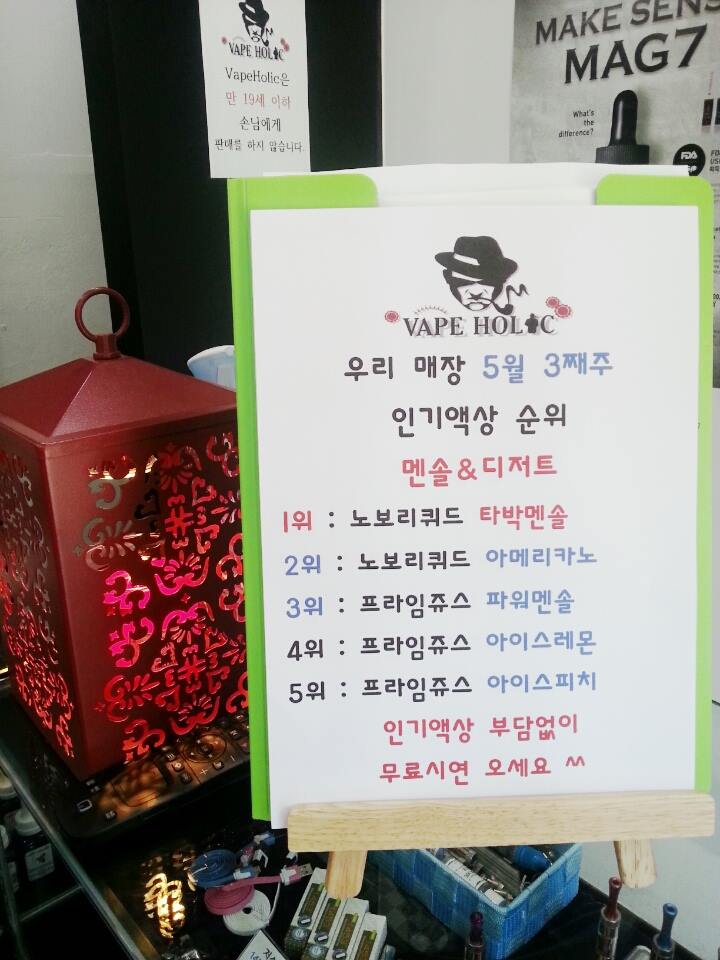 VAPE HOLIC
VapeHolic은
만 19세 이하
손님에게
판매를 하지 않습니다.
MAKE SENS
MAG7
What's
the
difference?
FDA
VAPE HOLIC
우리 매장 5월 3째주
인기액상 순위
멘솔&디저트
1위 : 노보리퀴드 타박멘솔
2위 : 노보리퀴드 아메리카노
3위 : 프라임쥬스 파워멘솔
4위 : 프라임쥬스 아이스레몬
5위 : 프라임쥬스 아이스피치
인기액상 부담없이
무료시연 오세요 ^^